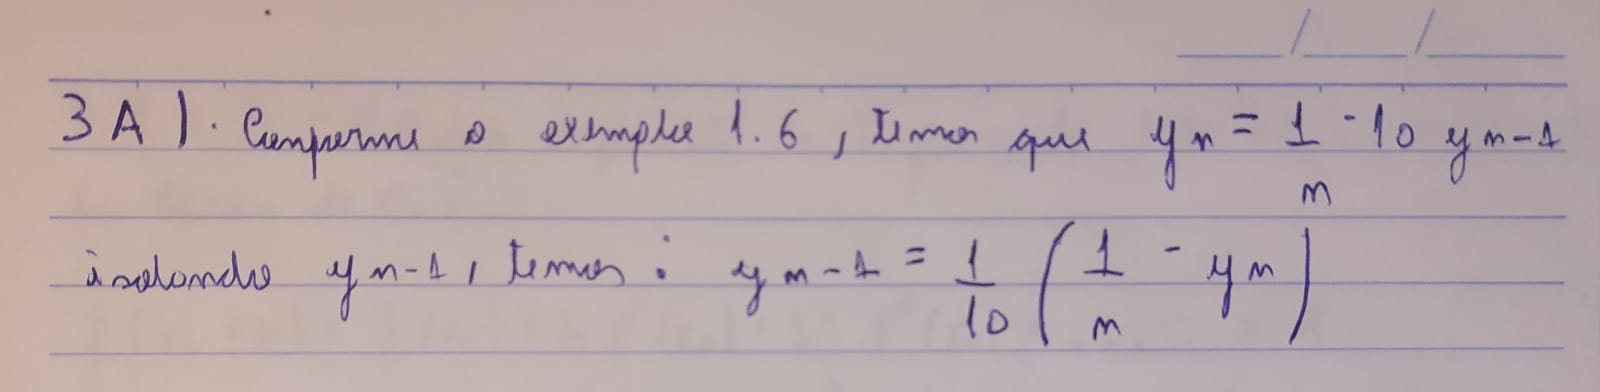 __/__/__
3A). Conforme o exemplo 1.6, temos que yn = 1/n - 10 yn-1
isolando yn-1, temos: yn-1 = 1/10 (1/n - yn)